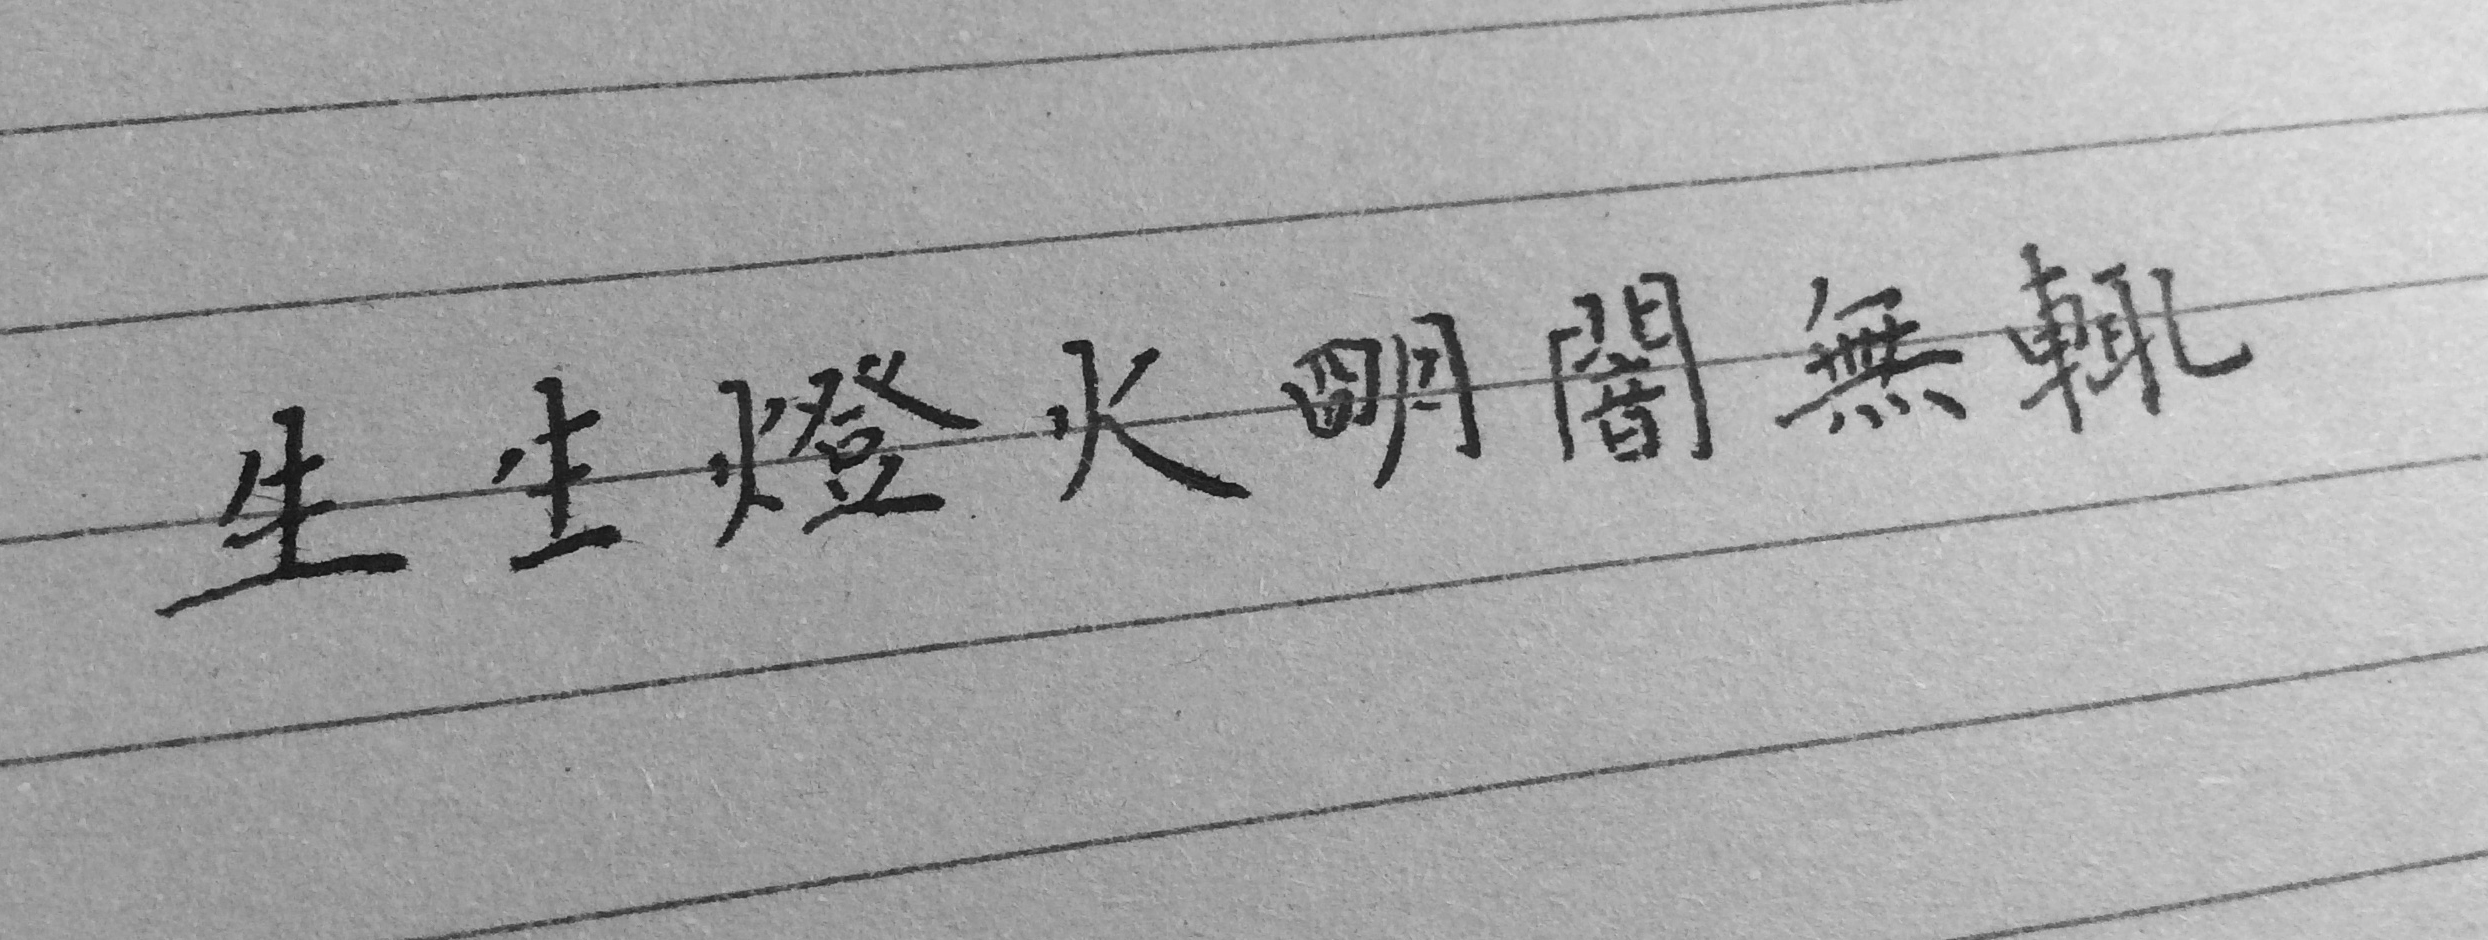 生生燈火朙闇無輒